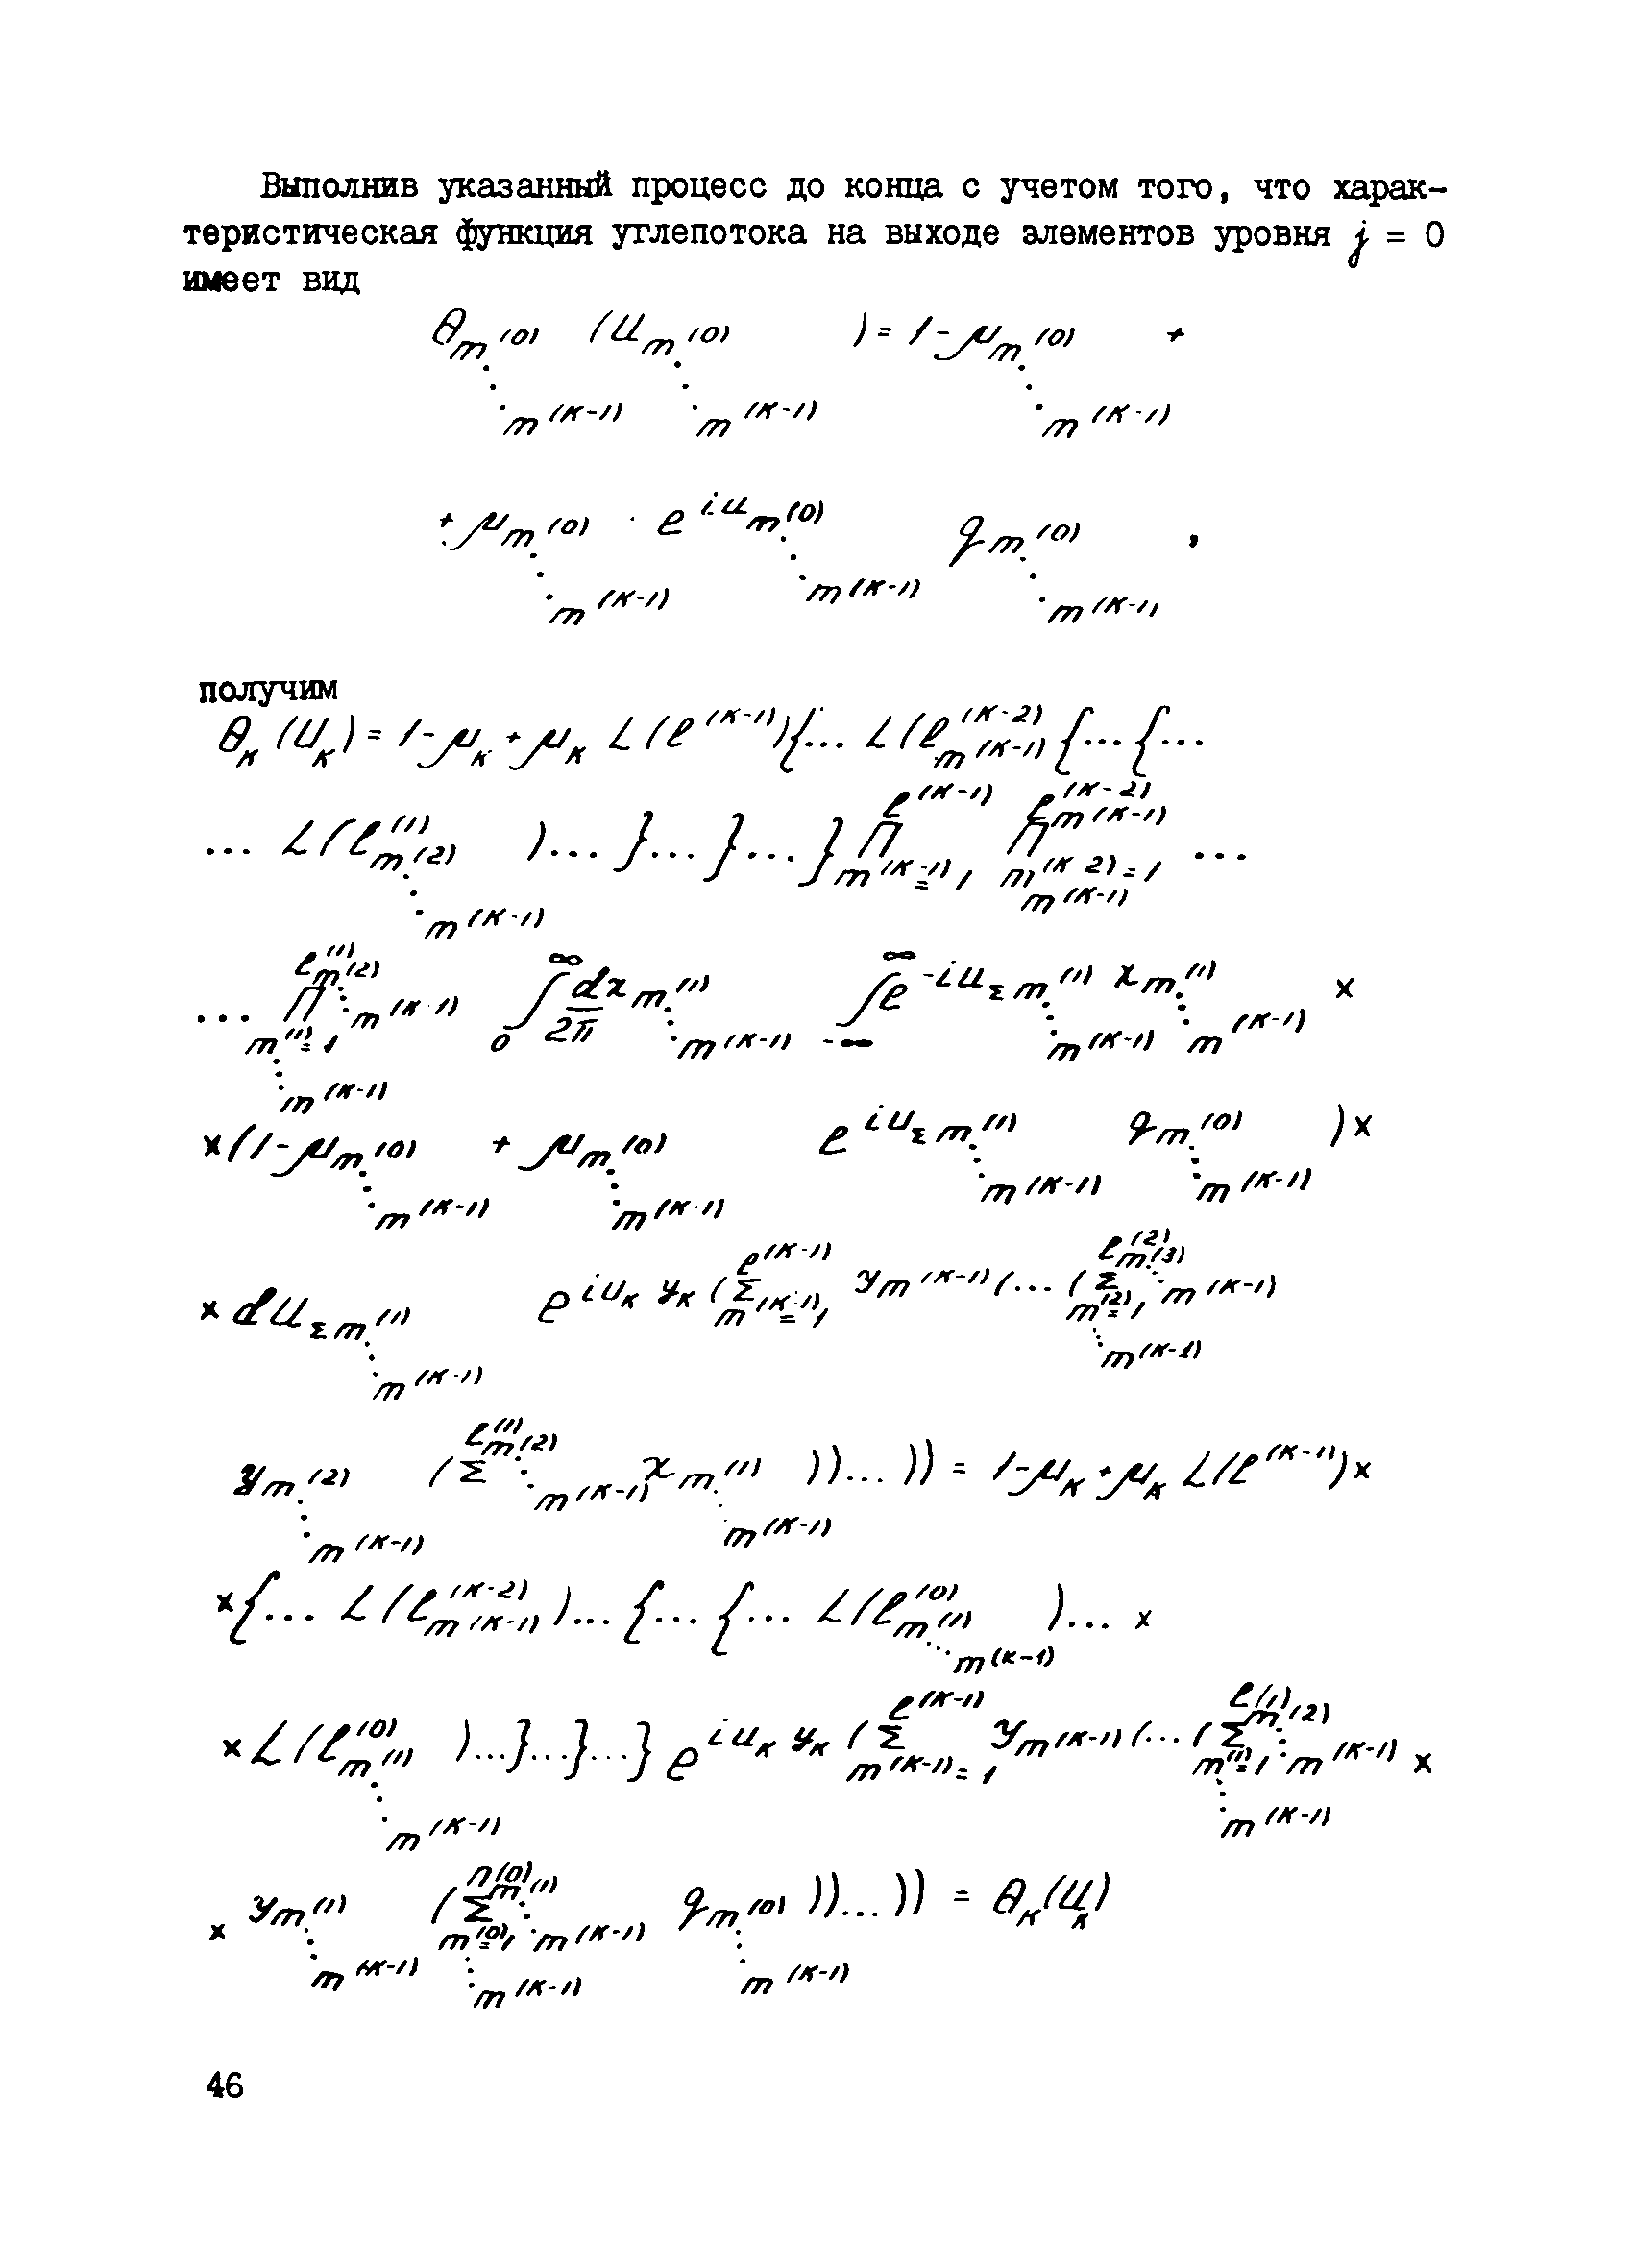 Выполнив указанный процесс до конца с учетом того, что харак-
теристическая функция углепотока на выходе элементов уровня j = 0
имеет вид
θ_{m^{(0)}⋱m^{(К-1)}} (U_{m^{(0)}⋱m^{(К-1)}}) = 1-μ_{m^{(0)}⋱m^{(К-1)}} +
+ μ_{m^{(0)}⋱m^{(К-1)}} · e^{iu_{m^{(0)}⋱m^{(К-1)}} q_{m^{(0)}⋱m^{(К-1)}}} ,
получим
θ_К (U_К) = 1-μ_К + μ_К L(ℓ^{(К-1)}){... L(ℓ_{m^{(К-1)}}^{(К-2)}{...{...
... L(ℓ^{(1)}_{m^{(2)}⋱m^{(К-1)}})...}...}...} ∏_{m^{(К-1)}=1}^{ℓ^{(К-1)}} ∏_{m^{(К-2)}_{m^{(К-1)}}=1}^{ℓ^{(К-2)}_{m^{(К-1)}}} ...
... ∏_{m^{(1)}⋱m^{(К-1)}=1}^{ℓ^{(1)}_{m^{(2)}⋱m^{(К-1)}}} ∫_0^∞ dx_{m^{(1)}⋱m^{(К-1)}}/2π ∫_{-∞}^∞ e^{-iu_{Σm^{(1)}⋱m^{(К-1)}} x_{m^{(1)}⋱m^{(К-1)}}} ×
×(1-μ_{m^{(0)}⋱m^{(К-1)}} + μ_{m^{(0)}⋱m^{(К-1)}} e^{iu_{Σm^{(1)}⋱m^{(К-1)}} q_{m^{(0)}⋱m^{(К-1)}}})×
× dU_{Σm^{(1)}⋱m^{(К-1)}} e^{iu_К y_К (Σ_{m^{(К-1)}=1}^{ℓ^{(К-1)}} y_{m^{(К-1)}}(... (Σ_{m^{(2)}⋱m^{(К-1)}=1}^{ℓ^{(2)}_{m^{(3)}⋱m^{(К-1)}}}
y_{m^{(2)}⋱m^{(К-1)}} (Σ^{ℓ^{(1)}_{m^{(2)}⋱m^{(К-1)}}} x_{m^{(1)}⋱m^{(К-1)}} ))...)) = 1-μ_К + μ_К L(ℓ^{(К-1)})×
×{... L(ℓ^{(К-2)}_{m^{(К-1)}})...{...{... L(ℓ^{(0)}_{m^{(1)}⋱m^{(К-1)}})... ×
×L(ℓ^{(0)}_{m^{(1)}⋱m^{(К-1)}})...}...}...} e^{iu_К y_К (Σ_{m^{(К-1)}=1}^{ℓ^{(К-1)}} y_{m^{(К-1)}}(... (Σ_{m^{(1)}⋱m^{(К-1)}=1}^{ℓ^{(1)}_{m^{(2)}⋱m^{(К-1)}}} ×
× y_{m^{(1)}⋱m^{(К-1)}} (Σ_{m^{(0)}⋱m^{(К-1)}=1}^{n^{(0)}_{m^{(1)}⋱m^{(К-1)}}} q_{m^{(0)}⋱m^{(К-1)}} ))...)) = θ_К(U_К)
46